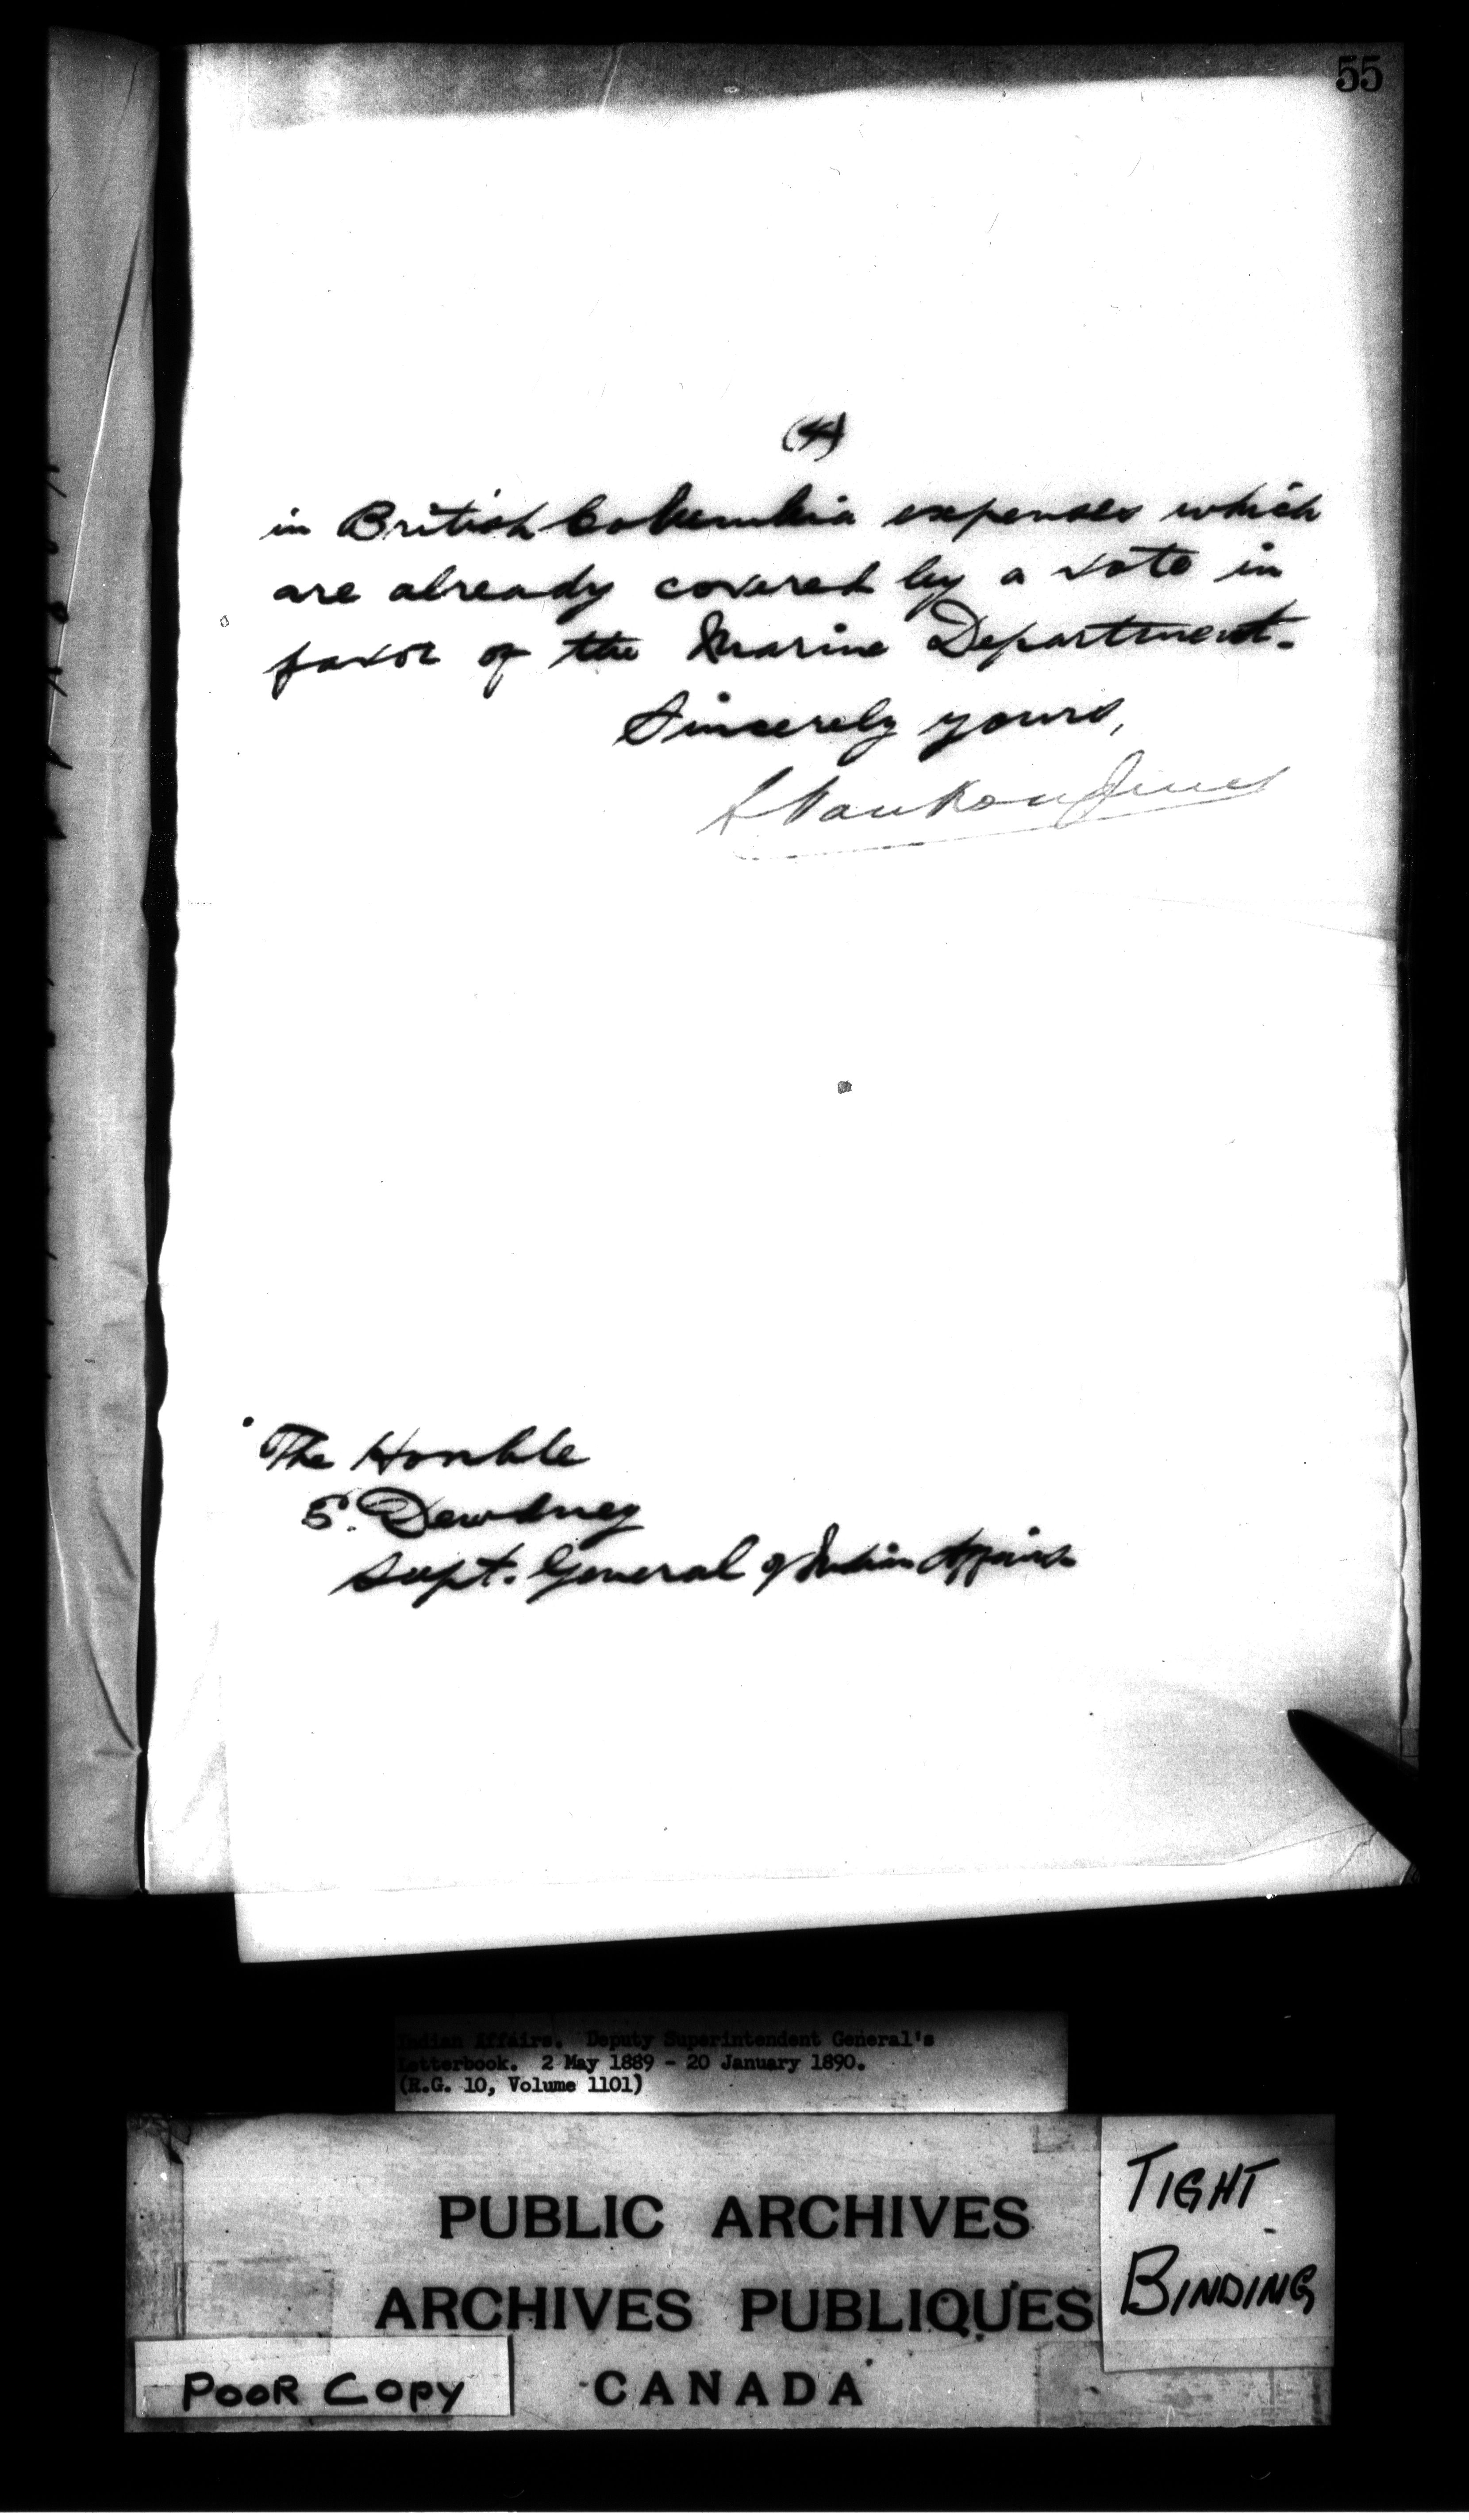 55
(4)
in British Columbia expenses which
are already covered by a vote in
favor of the Marine Department.
Sincerely yours,
L VanKoughnet
The Honble
E. Dewdney
Supt. General of Indian Affairs
Indian Affairs. Deputy Superintendent General's
Letterbook. 2 May 1889 - 20 January 1890.
(R.G. 10, Volume 1101)
PUBLIC ARCHIVES
ARCHIVES PUBLIQUES
CANADA
TIGHT
BINDING
POOR COPY